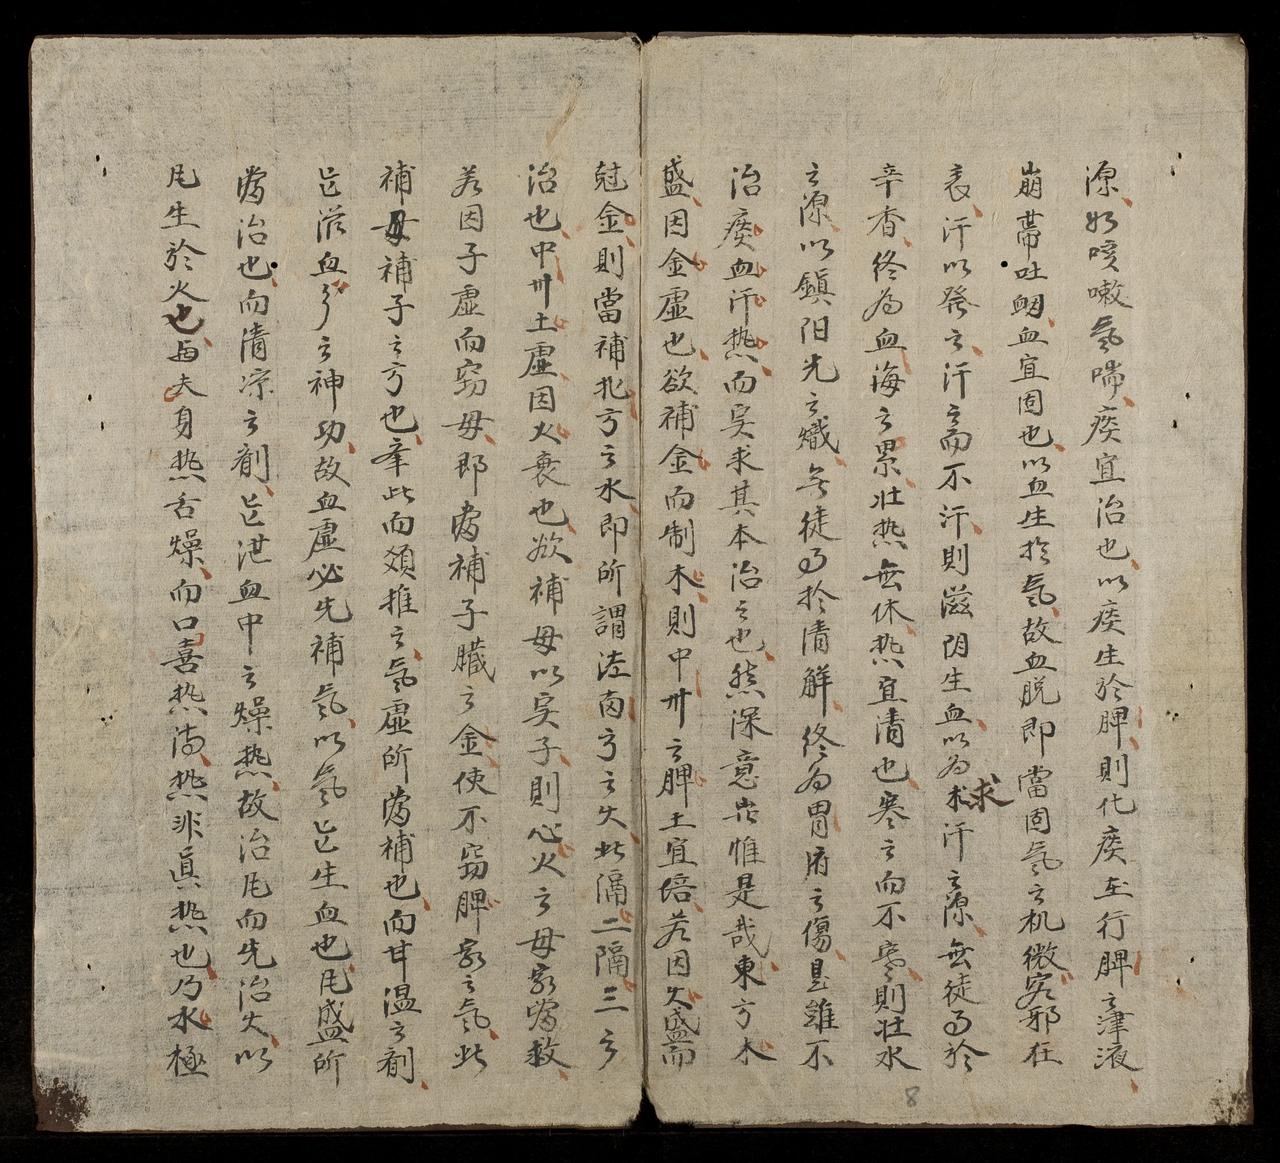 源如咳嗽氣喘痰宜治也以痰生於脾則化痰在行脾之津液
崩帶吐衄血宜固也以血生於氣故血脱即當固氣之机微客邪在
表汗以發之汗之而不汗則滋阴生血以为求汗之源無徒为於
辛香終为血海之累壮热無休热宜清也寒之而不寒則壮水
之源以鎮阳光之熾無徒为於清解終为胃府之傷是雖不
治痰血汗热而寔求其本治之也然深意岂惟是哉東方木
盛因金虚也欲補金而制木則中州之脾土宜培若因火盛而
尅金則當補北方之水即所謂泻南方之火此隔二隔三之
治也中州土虚因火衰也欲補母以寔子則心火之母家當救
若因子虚而窃母即當補子臓之金使不窃脾家之氣此
補母補子之方也挙此而類推之氣虚所當補也而甘温之剤
岂滋血之神功故血虚必先補氣以氣岂生血也凡盛所
當治也而清凉之剤岂泄血中之燥热故治凡而先治火以
凡生於火也与夫身热舌燥而口喜热汤热非真热也乃水極